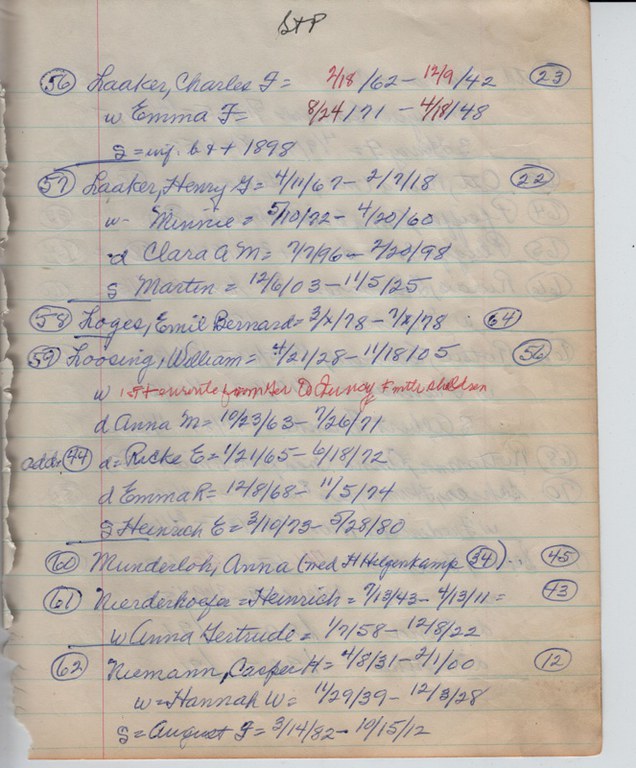 St P
(56) Laaker, Charles F = 2/18/62 – 12/9/42 (23)
w Emma F = 8/24/71 – 4/18/48
S = inf. b + + 1898
(57) Laaker, Henry G = 4/11/67 – 2/7/18 (22)
w – Minnie = 5/10/72 – 4/20/60
d Clara A M = 7/7/96 – 2/20/98
S Martin = 12/6/03 – 11/5/25
(58) Loges, Emil Bernard = 3/x/78 – 7/x/78 (64)
(59) Loosing, William = 4/21/28 – 11/18/05 (56)
w 1st + enroute from Ger to Quincy
d Anna M = 10/23/63 – 7/26/71
add: (44) d = Ricke E = 1/21/65 – 6/18/72
d Emma R = 12/8/68 – 11/5/74
S Heinrich E = 3/10/73 – 5/28/80
(60) Munderloh, Anna (med H Helgenkamp (34)) . . (45)
(61) Nierderkoefer = Heinrich = 7/13/43 – 4/13/11 = (43)
w Anna Gertrude = 1/7/58 – 12/8/22
(62) Niemann, Casper H = 4/8/31 – 2/1/00 (12)
w = Hannah W = 11/29/39 – 12/3/28
S = August F = 3/14/82 – 10/15/12